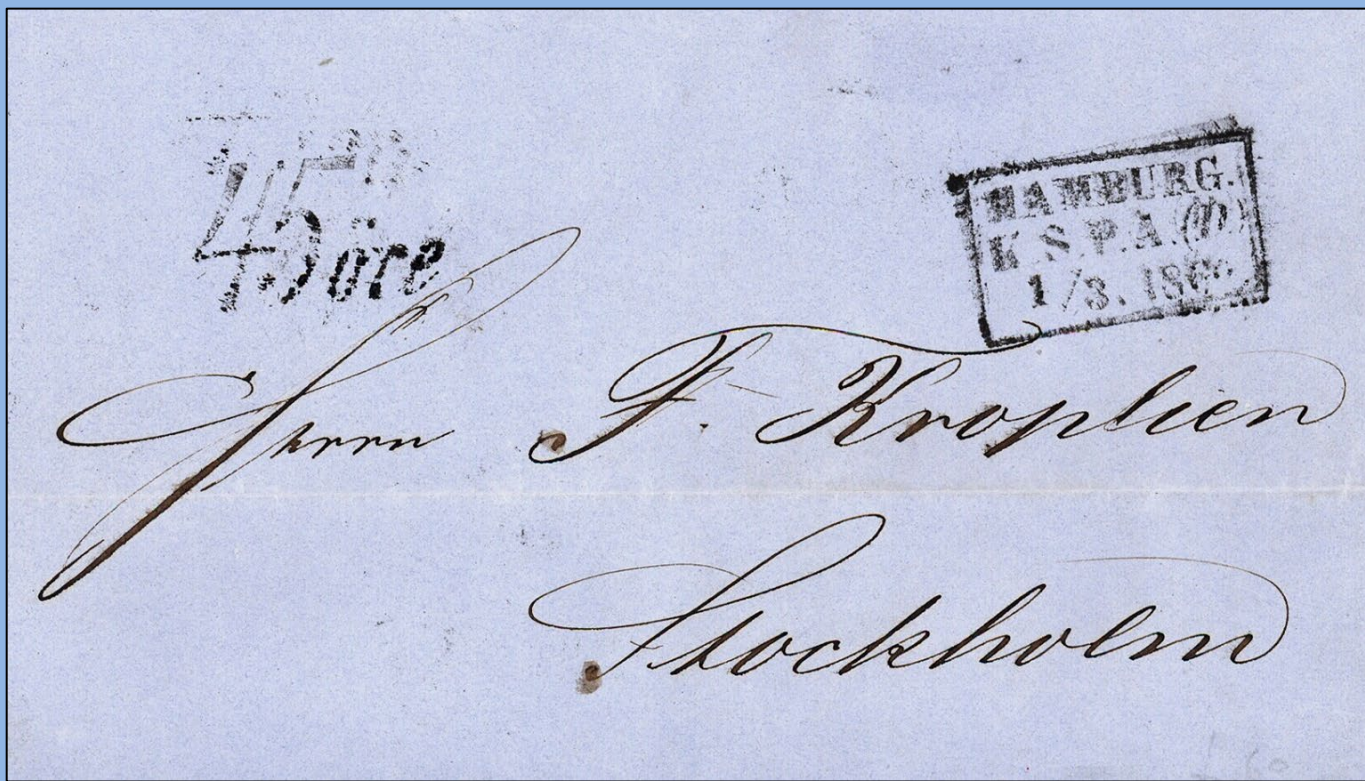 45 öre
HAMBURG.
K.S.P.A.(D.)
1/3.
Herrn F. Kroplien
Stockholm